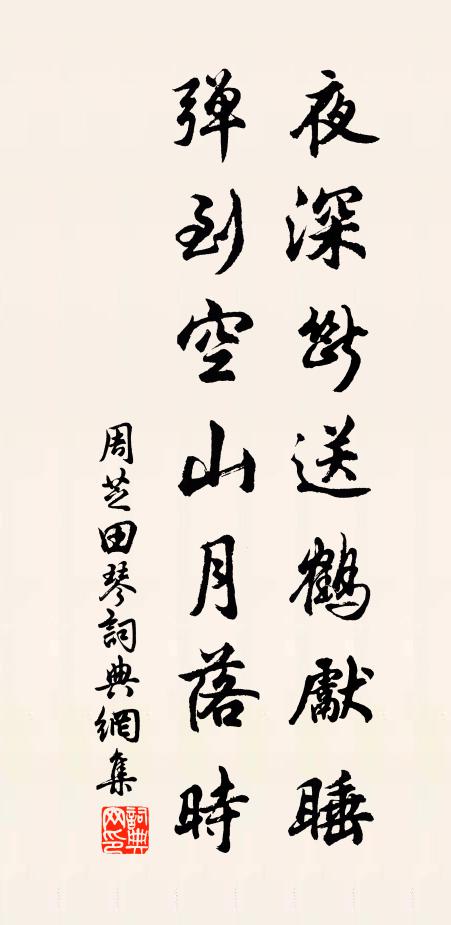 夜深斷送鶴獻睡
弹到空山月落時
周芝田琴詞典網集
詞典网印